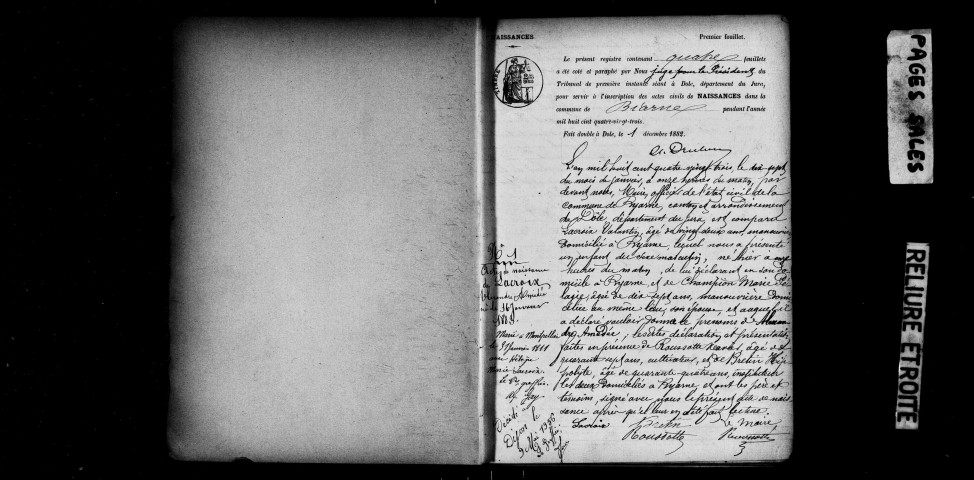 NAISSANCES
Premier feuillet.
Le présent registre contenant quatre feuillets
a été coté et paraphé par Nous juge pour le Président du
Tribunal de première instance séant à Dole, département du Jura,
pour servir à l'inscription des actes civils de NAISSANCES dans la
commune de Biarne pendant l'année
mil huit cent quatre-vingt-trois.
Fait double à Dole, le 1 décembre 1882.
L'an mil huit cent quatre vingt trois, le dix sept
du mois de janvier, à onze heures du matin, par
devant nous, Maire, officier de l'état civil de la
commune de Byarne, canton et arrondissement
de Dôle, département du Jura, est comparu
Lacroix Valentin, âgé de vingt deux ans, manouvrier
domicilié à Byarne, lequel nous a présenté
un enfant du sexe masculin, né hier à onze
heures du matin, de lui déclarant en son do
micile à Byarne, et de Champion Marie Pé
lagie, âgée de dix sept ans, manouvrière domi
ciliée au même lieu, son épouse, et auquel il
a déclaré vouloir donner le prénoms de Alexan
dre Amédée; lesdites déclaration et présentation
faites en présence de Roussotte, âgé de
quarante sept ans, cultivateur, et de Bretin Hip
polyte, âgé de quarante quatre ans, instituteur
les deux domiciliés à Byarne, et ont les père et
témoins, signé avec nous le présent acte de nais
sance après qu'il leur en a été fait lecture.
Le Maire,
Lacroix Bretin
Roussotte Roussotte
N° 1
Acte de naissance
de Lacroix
Alexandre Amédée
né le 16 janvier
1883.
Marié à Montpellier
le janvier
avec
Marie
Le Greffier
Décédé à
Dijon le
9 Mai 1956
PAGES SALES
RELIURE ETROITE